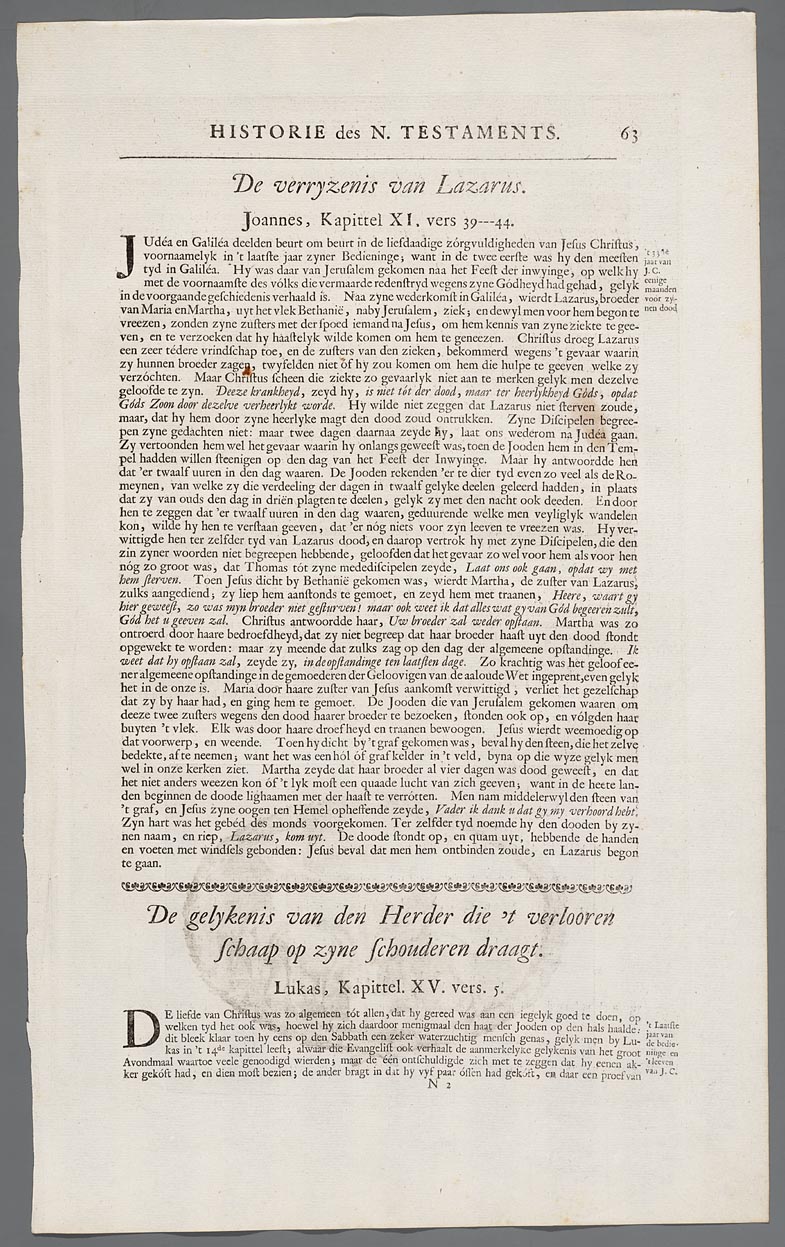 HISTORIE des N. TESTAMENTS. 63
De verryzenis van Lazarus.
Joannes, Kapittel XI, vers 39---44.
JUdéa en Galiléa deelden beurt om beurt in de liefdaadige zórgvuldigheden van Jeſus Chriſtus,
voornamelyk in 't laatſte jaar zyner Bedieninge; want in de twee eerſte was hy den meeſten
tyd in Galiléa. Hy was daar van Jeruſalem gekomen naa het Feeſt der inwyinge, op welk hy
met de voornaamſte des vólks die vermaarde redenſtryd wegens zyne Gódheyd had gehad, gelyk
in de voorgaande geſchiedenis verhaald is. Naa zyne wederkomſt in Galiléa, wierdt Lazarus, broeder
van Maria en Martha, uyt het vlek Bethanië, naby Jeruſalem, ziek; en dewyl men voor hem begon te
vreezen, zonden zyne zuſters met der ſpoed iemand na Jeſus, om hem kennis van zyne ziekte te gee-
ven, en te verzoeken dat hy haaſtelyk wilde komen om hem te geneezen. Chriſtus droeg Lazarus
een zeer tédere vrindſchap toe, en de zuſters van den zieken, bekommerd wegens 't gevaar waarin
zy hunnen broeder zagen, twyfelden niet óf hy zou komen om hem die hulpe te geeven welke zy
verzóchten. Maar Chriſtus ſcheen die ziekte zo gevaarlyk niet aan te merken gelyk men dezelve
geloofde te zyn. Deeze krankheyd, zeyd hy, is niet tót der dood, maar ter heerlykheyd Góds, opdat
Góds Zoon door dezelve verheerlykt worde. Hy wilde niet zeggen dat Lazarus niet ſterven zoude,
maar, dat hy hem door zyne heerlyke magt den dood zoud ontrukken. Zyne Diſcipelen begree-
pen zyne gedachten niet: maar twee dagen daarnaa zeyde hy, laat ons wederom na Judéa gaan.
Zy vertoonden hem wel het gevaar waarin hy onlangs geweeſt was, toen de Jooden hem in den Tem-
pel hadden willen ſteenigen op den dag van het Feeſt der Inwyinge. Maar hy antwoordde hen
dat 'er twaalf uuren in den dag waaren. De Jooden rekenden 'er te dier tyd even zo veel als de Ro-
meynen, van welke zy die verdeeling der dagen in twaalf gelyke deelen geleerd hadden, in plaats
dat zy van ouds den dag in driën plagten te deelen, gelyk zy met den nacht ook deeden. En door
hen te zeggen dat 'er twaalf uuren in den dag waaren, geduurende welke men veyliglyk wandelen
kon, wilde hy hen te verſtaan geeven, dat 'er nóg niets voor zyn leeven te vreezen was. Hy ver-
wittigde hen ter zelfder tyd van Lazarus dood, en daarop vertrok hy met zyne Diſcipelen, die den
zin zyner woorden niet begreepen hebbende, geloofden dat het gevaar zo wel voor hem als voor hen
nóg zo groot was, dat Thomas tót zyne mededifcipelen zeyde, Laat ons ook gaan, opdat wy met
hem ſterven. Toen Jeſus dicht by Bethanië gekomen was, wierdt Martha, de zuſter van Lazarus,
zulks aangediend; zy liep hem aanſtonds te gemoet, en zeyd hem met traanen, Heere, waart gy
hier geweeſt, zo was myn broeder niet geſturven! maar ook weet ik dat alles wat gy van Gód begeeren zult,
Gód het u geeven zal. Chriſtus antwoordde haar, Uw broeder zal weder opſtaan. Martha was zo
ontroerd door haare bedroefdheyd, dat zy niet begreep dat haar broeder haaſt uyt den dood ſtondt
opgewekt te worden: maar zy meende dat zulks zag op den dag der algemeene opſtandinge. Ik
weet dat hy opſtaan zal, zeyde zy, in de opſtandinge ten laatſten dage. Zo krachtig was het geloof ee-
ner algemeene opſtandinge in de gemoederen der Geloovigen van de aaloude Wet ingeprent, even gelyk
het in de onze is. Maria door haare zuſter van Jeſus aankomſt verwittigd, verliet het gezelſchap
dat zy by haar had, en ging hem te gemoet. De Jooden die van Jeruſalem gekomen waaren om
deeze twee zuſters wegens den dood haarer broeder te bezoeken, ſtonden ook op, en vólgden haar
buyten 't vlek. Elk was door haare droefheyd en traanen bewoogen. Jeſus wierdt weemoedig op
dat voorwerp, en weende. Toen hy dicht by 't graf gekomen was, beval hy den ſteen, die het zelve
bedekte, af te neemen; want het was een hól óf grafkelder in 't veld, byna op die wyze gelyk men
wel in onze kerken ziet. Martha zeyde dat haar broeder al vier dagen was dood geweeſt, en dat
het niet anders weezen kon óf 't lyk moſt een quaade lucht van zich geeven; want in de heete lan-
den beginnen de doode lighaamen met der haaſt te verrótten. Men nam middelerwyl den ſteen van
't graf, en Jeſus zyne oogen ten Hemel opheffende zeyde, Vader ik dank u dat gy my verhoord hebt.
Zyn hart was het gebéd des monds voorgekomen. Ter zelfder tyd noemde hy den dooden by zy-
nen naam, en riep, Lazarus, kom uyt. De doode ſtondt op, en quam uyt, hebbende de handen
en voeten met windſels gebonden: Jeſus beval dat men hem ontbinden zoude, en Lazarus begon
te gaan.
't 33ſte
jaar van
J. C.
eenige
maanden
voor zy-
nen dood
De gelykenis van den Herder die 't verlooren
ſchaap op zyne ſchouderen draagt.
Lukas, Kapittel. XV. vers. 5.
DE liefde van Chriſtus was zo algemeen tót allen, dat hy gereed was aan een iegelyk goed te doen, op
welken tyd het ook was, hoewel hy zich daardoor menigmaal den haat der Jooden op den hals haalde:
dit bleek klaar toen hy eens op den Sabbath een zeker waterzuchtig menſch genas, gelyk men by Lu-
kas in 't 14de kapittel leeſt; alwaar die Evangeliſt ook verhaalt de aanmerkelyke gelykenis van het groot
Avondmaal waartoe veele genoodigd wierden; maar de één ontſchuldigde zich met te zeggen dat hy eenen ak-
ker gekóft had, en dien moſt bezien; de ander bragt in dat hy vyf paar óſſen had gekóft, en daar een proef van
't Laatſte
jaar van
de bedie-
ninge en
't leeven
van J. C.
N 2